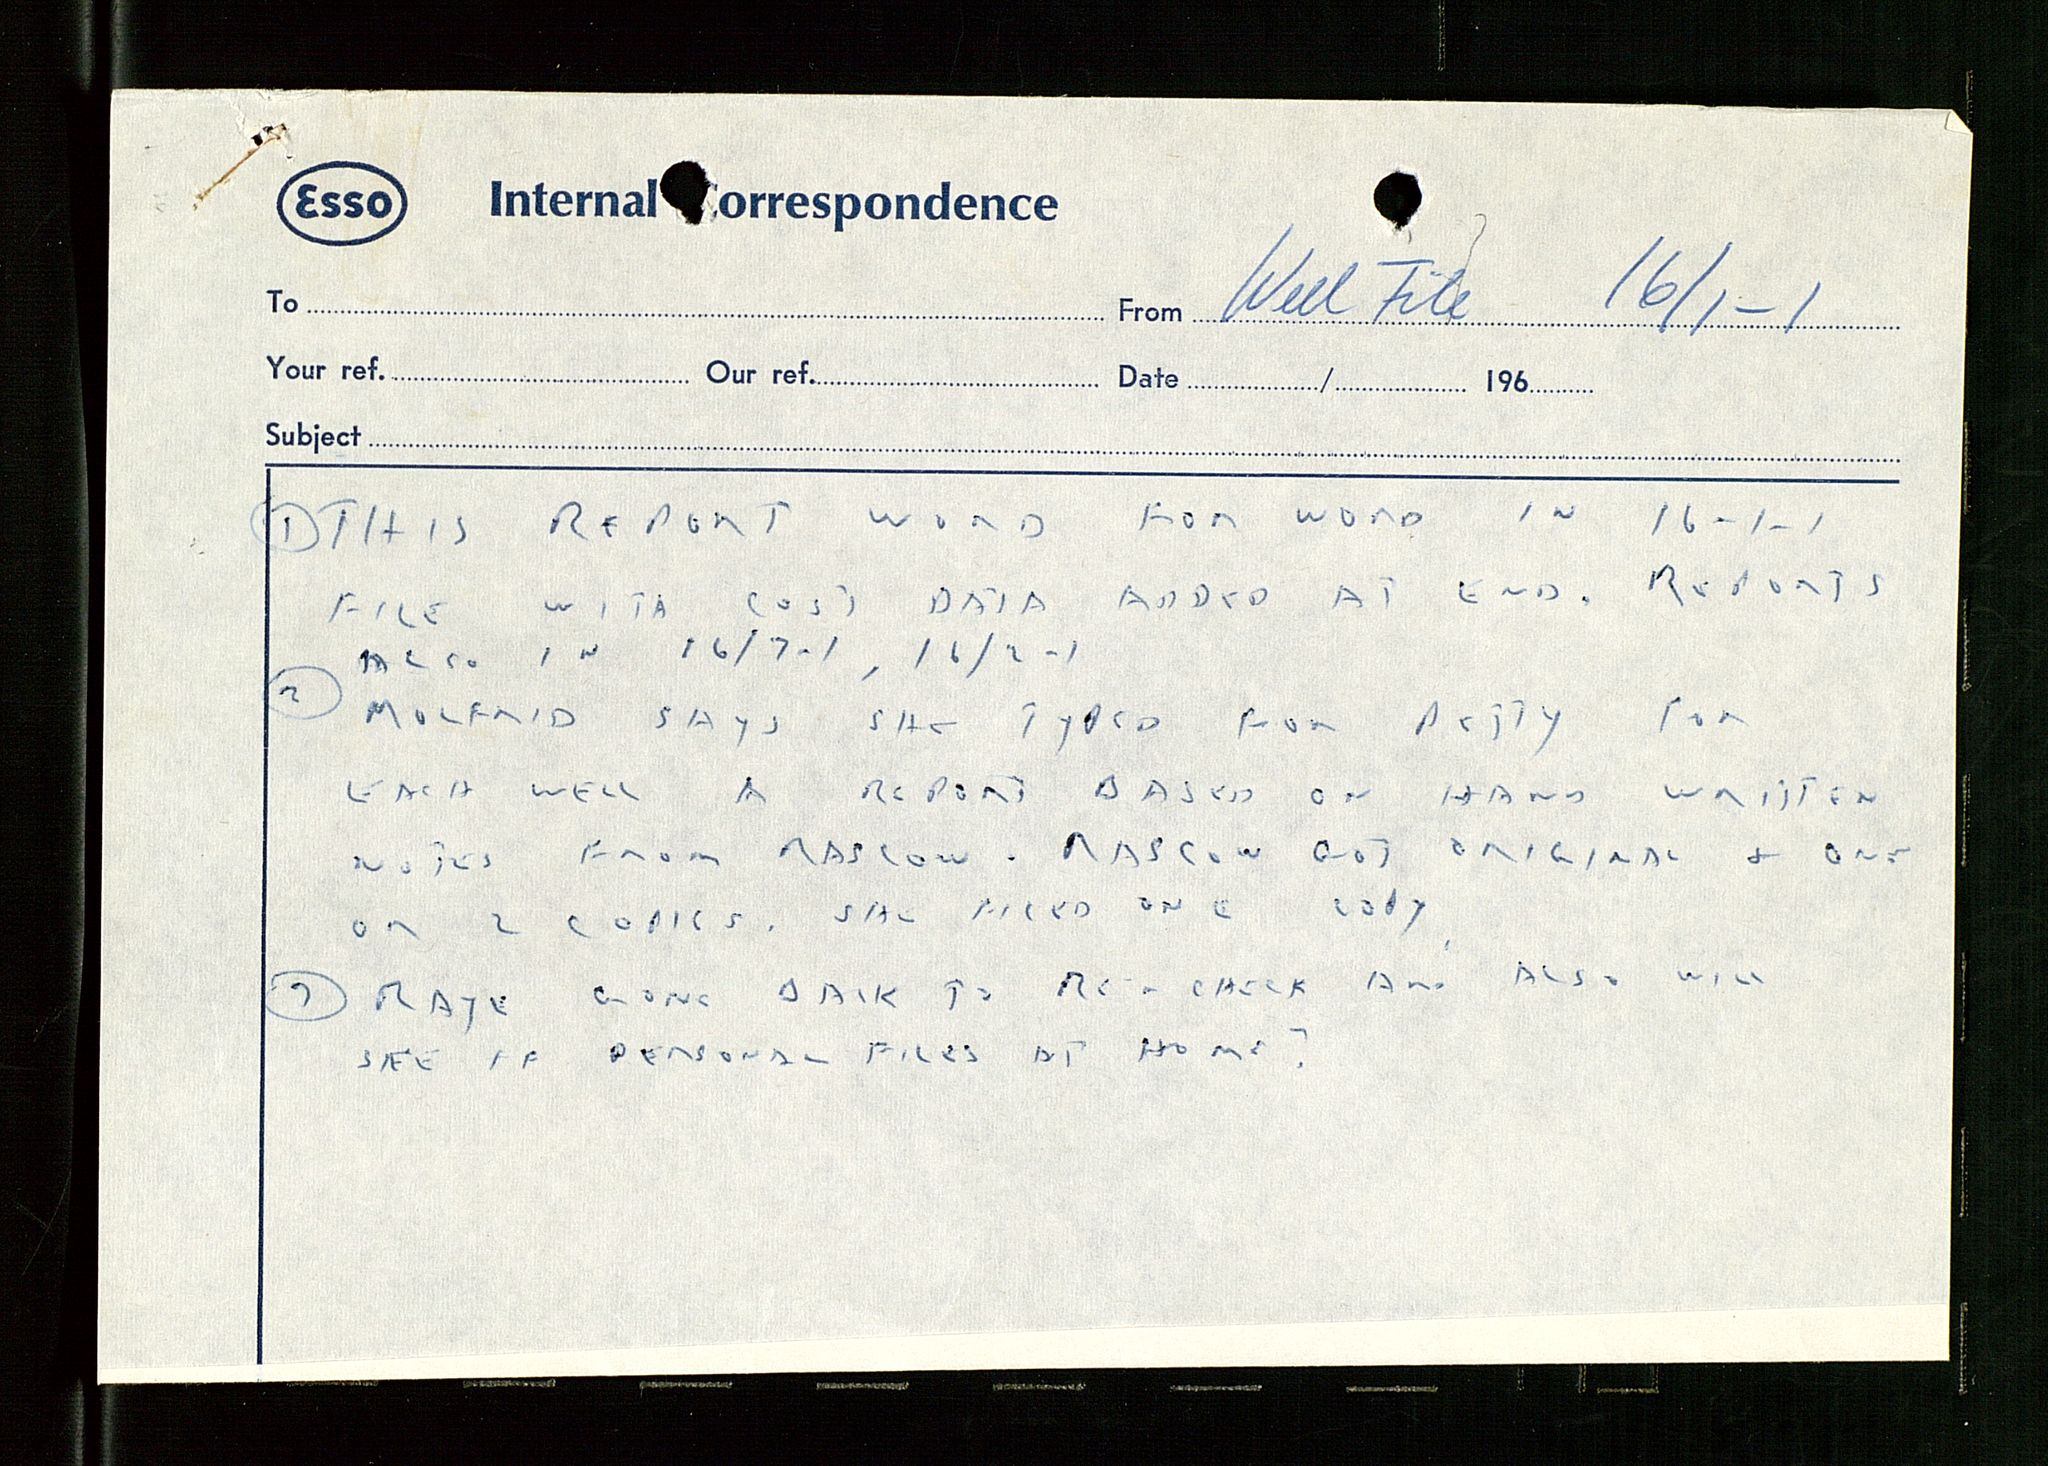 Esso Internal Correspondence
To From Well File 16/1-1
Your ref. Our ref. Date / 196
Subject
① THIS REPORT WORD FOR WORD IN 16-1-1
FILE WITH COST DATA ADDED AT END. REPORTS
ALSO IN 16/7-1, 16/2-1
② SAYS SHE TYPED FOR PETTY FOR
EACH WELL A REPORT BASED ON HAND WRITTEN
NOTES FROM RASCOW. RASCOW GOT ORIGINAL & ONE
OR 2 COPIES. SHE FILED ONE COPY.
③ RAYE GONE BACK TO RE-CHECK AND ALSO WILL
SEE IF PERSONAL FILES AT HOME?